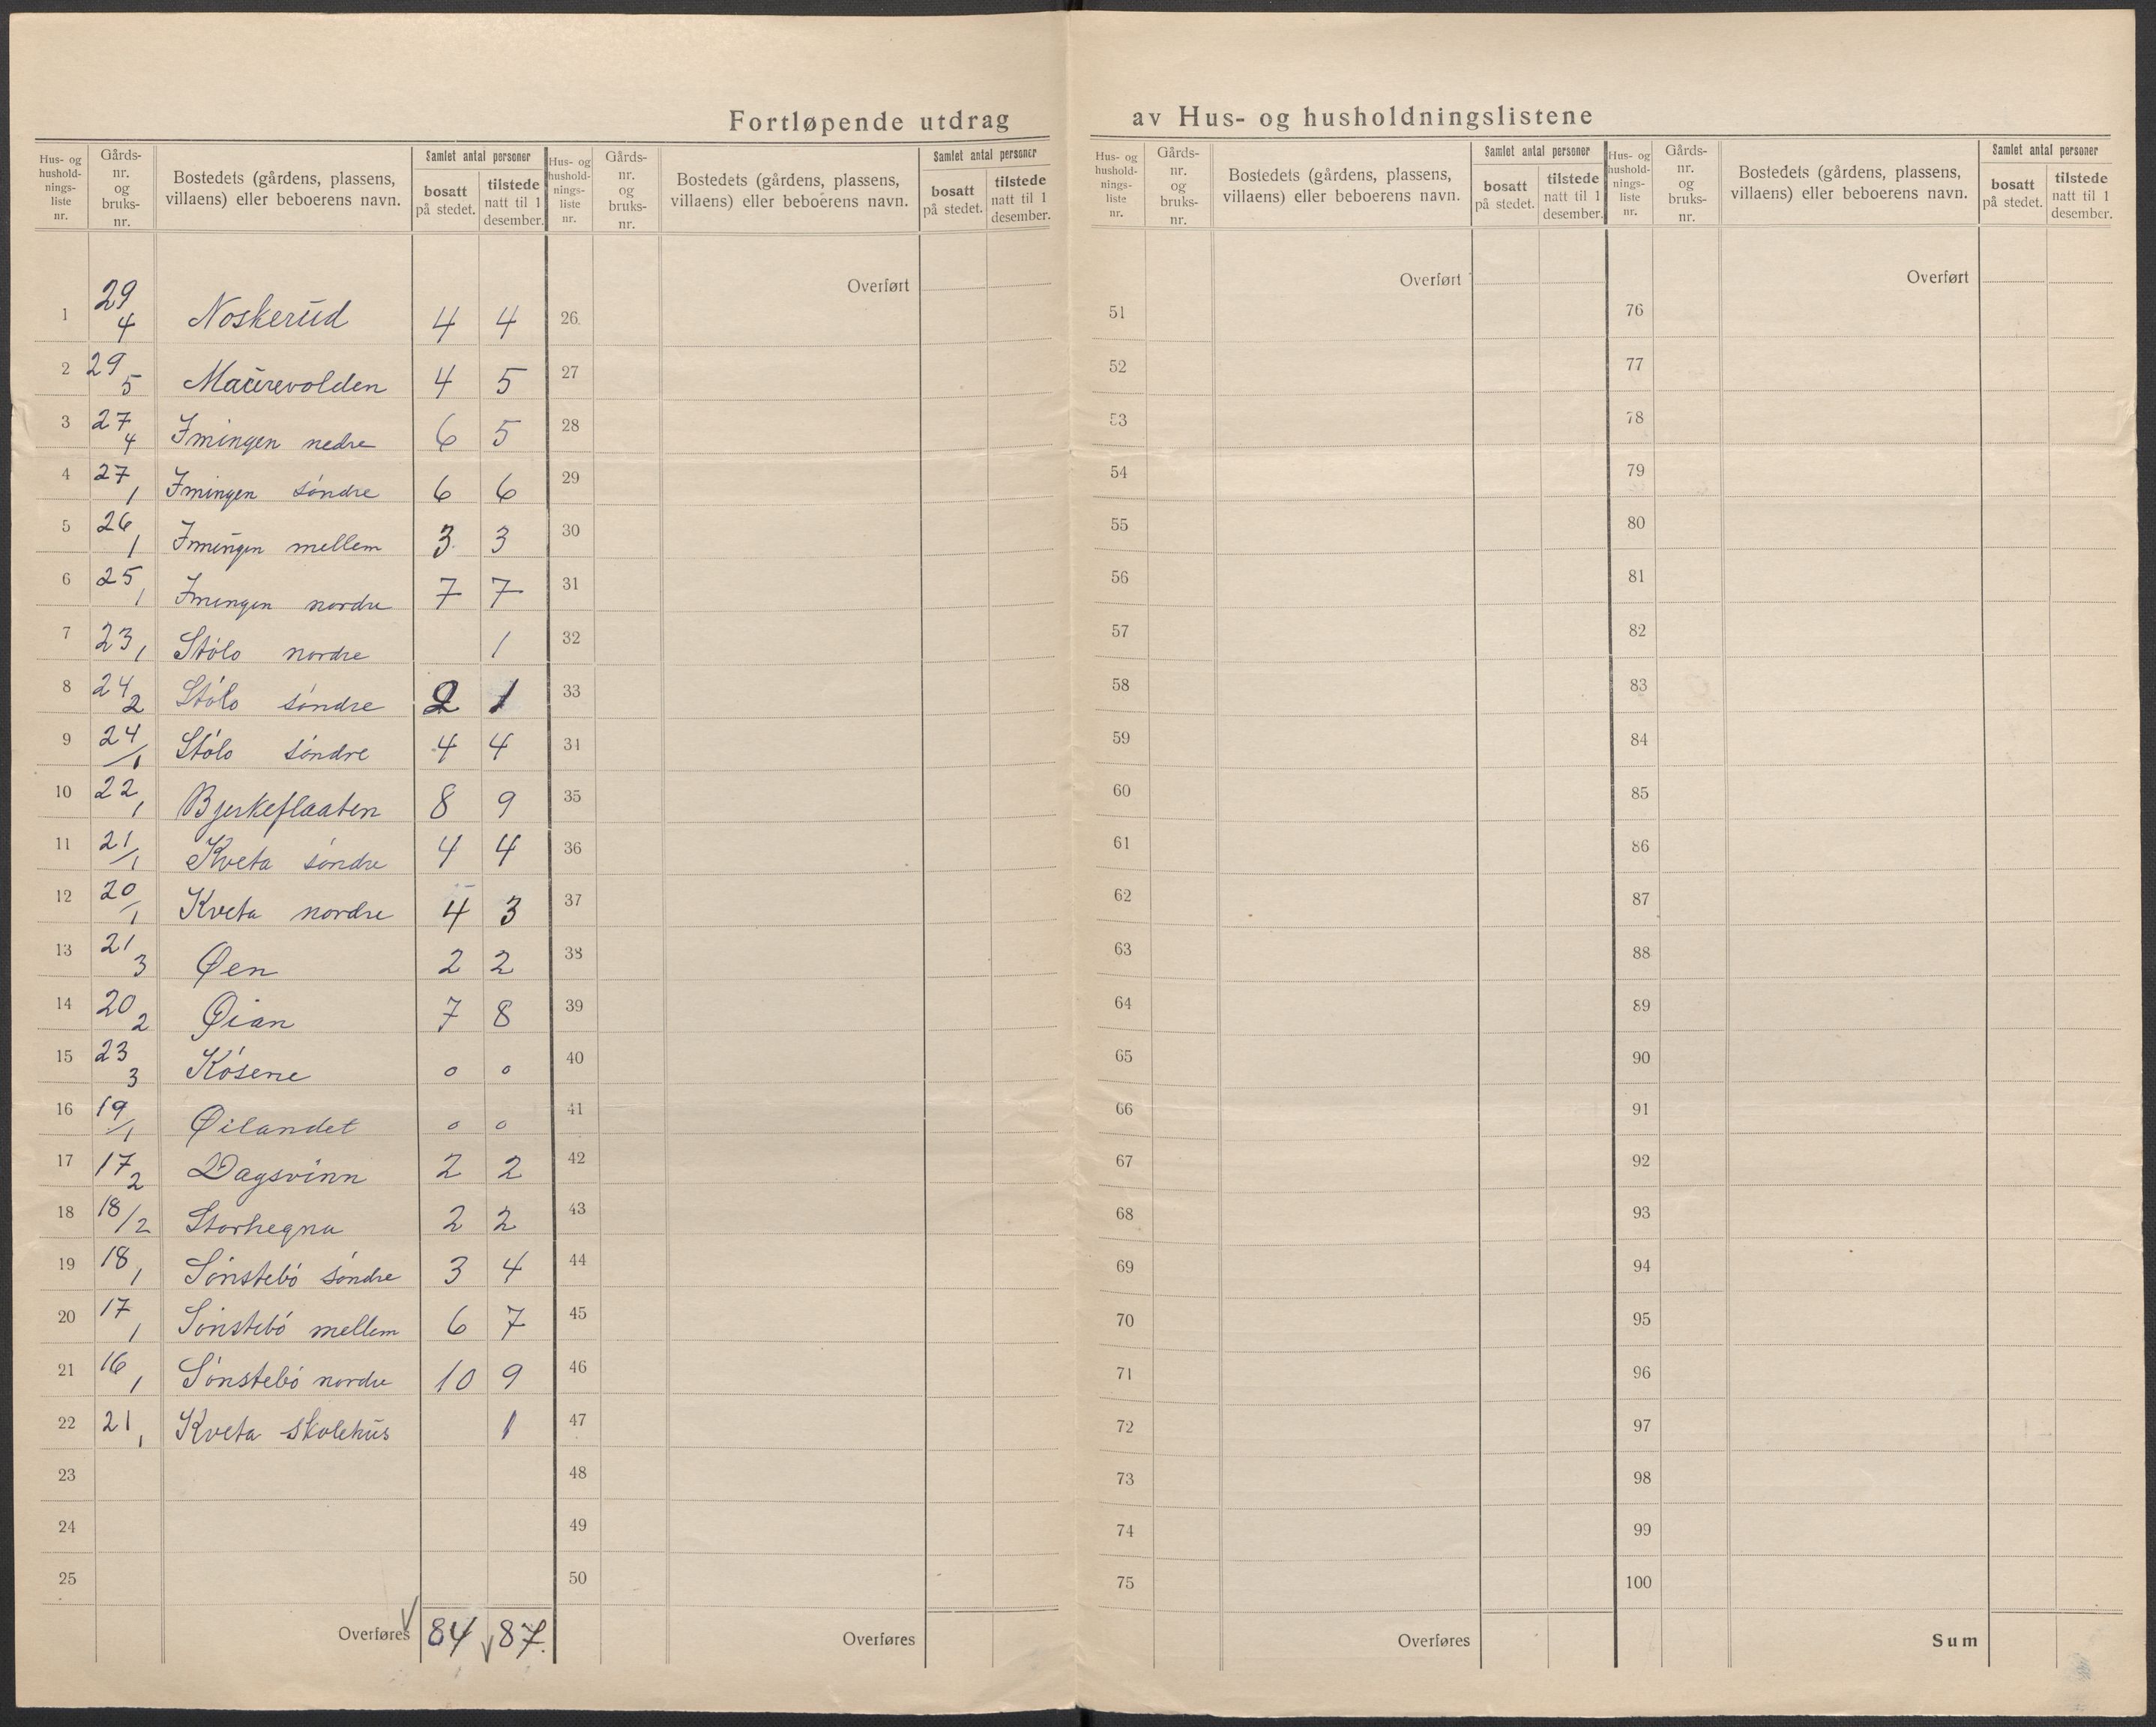 Fortløpende utdrag av Hus- og husholdningslistene
Hus- og hushold- nings- liste nr. | Gårds- nr. og bruks- nr. | Bostedets (gårdens, plassens, villaens) eller beboerens navn. | Samlet antal personer | bosatt på stedet. | tilstede natt til 1 desember.
Hus- og hushold- nings- liste nr. | Gårds- nr. og bruks- nr. | Bostedets (gårdens, plassens, villaens) eller beboerens navn. | Samlet antal personer | bosatt på stedet. | tilstede natt til 1 desember.
Hus- og hushold- nings- liste nr. | Gårds- nr. og bruks- nr. | Bostedets (gårdens, plassens, villaens) eller beboerens navn. | Samlet antal personer | bosatt på stedet. | tilstede natt til 1 desember.
Hus- og hushold- nings- liste nr. | Gårds- nr. og bruks- nr. | Bostedets (gårdens, plassens, villaens) eller beboerens navn. | Samlet antal personer | bosatt på stedet. | tilstede natt til 1 desember.
Overført Overført Overført
1 29/4 Noskerud 4 4 26 51 76
2 29/5 Maurevolden 4 5 27 52 77
3 27/4 Imingen nedre 6 5 28 53 78
4 27/1 Imingen söndre 6 6 29 54 79
5 26/1 Imingen mellem 3 3 30 55 80
6 25/1 Imingen nordre 7 7 31 56 81
7 23/1 Stölo nordre 1 32 57 82
8 24/2 Stölo söndre 2 1 33 58 83
9 24/1 Stölo söndre 4 4 34 59 84
10 22/1 Bjerkeflaaten 8 9 35 60 85
11 21/1 Kveta söndre 4 4 36 61 86
12 20/1 Kveta nordre 4 3 37 62 87
13 21/3 Øen 2 2 38 63 88
14 20/2 Øian 7 8 39 64 89
15 23/3 Kösene 0 0 40 65 90
16 19/1 Øilandet 0 0 41 66 91
17 17/2 Dagsvinn 2 2 42 67 92
18 18/2 Storhegna 2 2 43 68 93
19 18/1 Sönstebö söndre 3 4 44 69 94
20 17/1 Sönstebö mellem 6 7 45 70 95
21 16/1 Sönstebö nordre 10 9 46 71 96
22 21/1 Kveta skolehus 1 47 72 97
23 48 73 98
24 49 74 99
25 50 75 100
Overføres 84 87. Overføres Overføres Sum